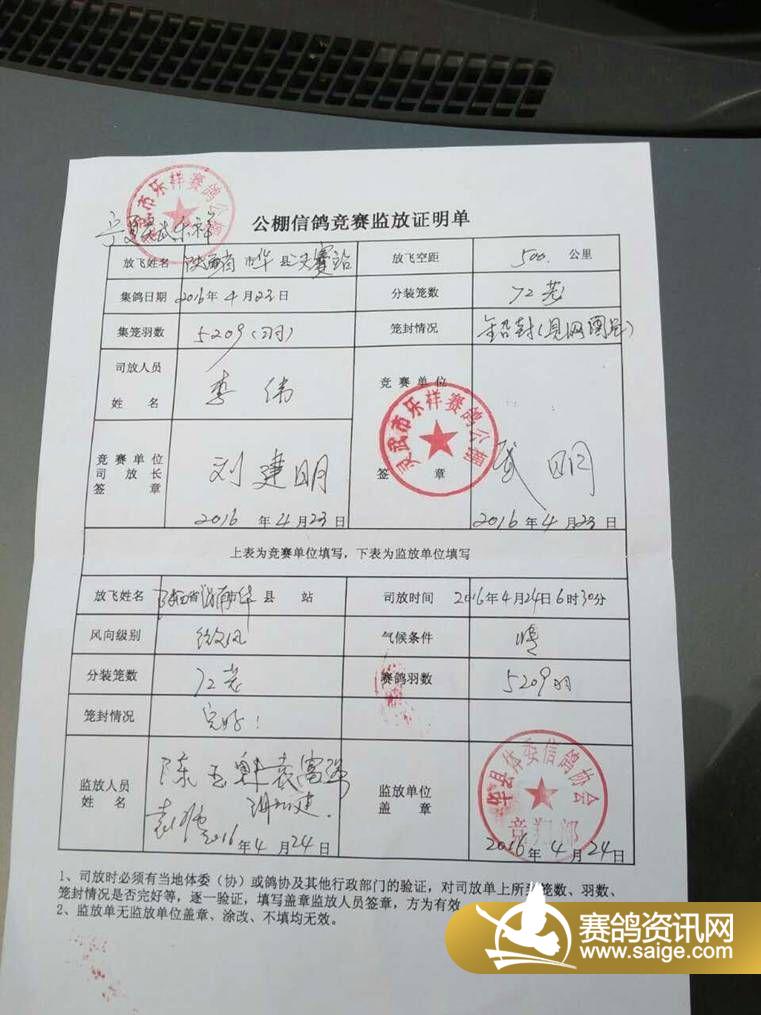 公棚信鸽竞赛监放证明单
放飞姓名 陕西省 市华县决赛站 放飞空距 500 公里
集鸽日期 2016年4月23日 分装笼数 72笼
集笼羽数 5209(羽) 笼封情况
司放人员 姓名 李伟 竞赛单位 签章
灵武市乐祥赛鸽公棚
竞赛单位 司放长 签章 刘建明
2016年4月23日 2016年4月23日
上表为竞赛单位填写，下表为监放单位填写
放飞姓名 陕西省渭南市华县 站 司放时间 2016年4月24日6时30分
风向级别 微风 气候条件 晴
分装笼数 72笼 赛鸽羽数 5209羽
笼封情况 完好！
监放人员 姓名 袁富强 监放单位 盖章
华县体委信鸽协会
竞翔部
2016年4月24日 2016年4月24日
1、司放时必须有当地体委（协）或鸽协及其他行政部门的验证，对司放单上所 笼数、羽数、
笼封情况是否完好等，逐一验证，填写盖章监放人员签章，方为有效
2、监放单无监放单位盖章、涂改、不填均无效。
赛鸽资讯网
www.saige.com